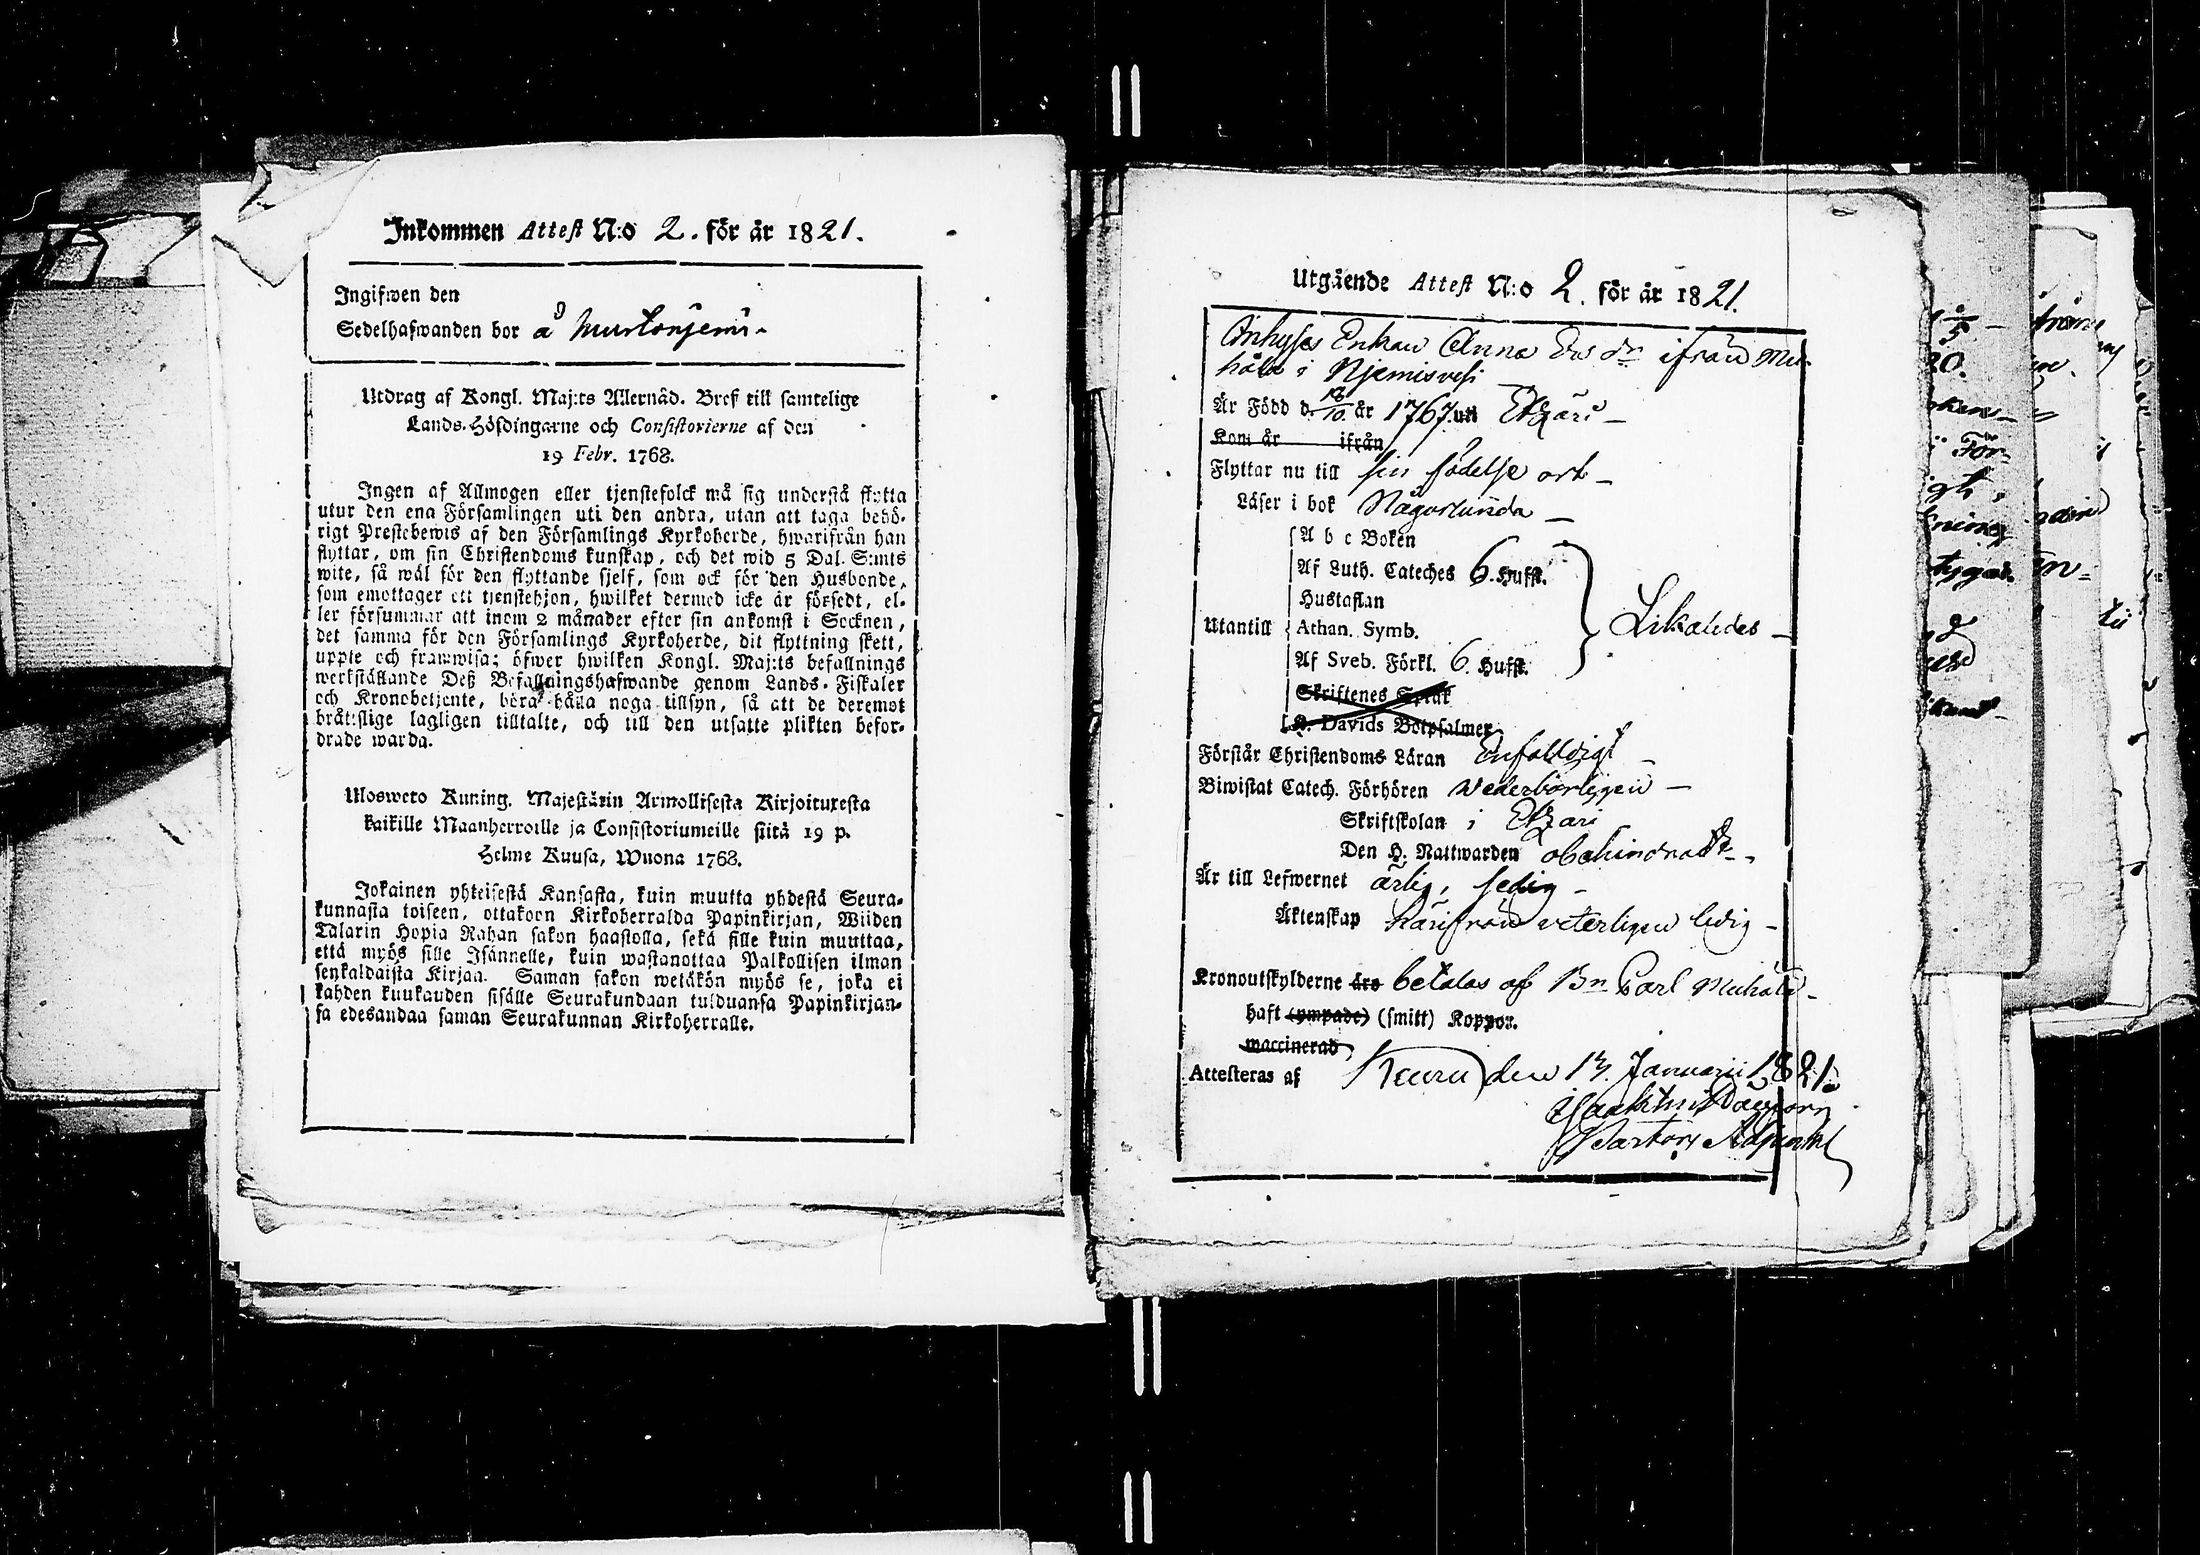 Inkommen Attest N:o 2. för år 1821.
Ingifwen den
Sedelhafwanden bor å
Utdrag af Kongl. Maj:ts Allernåd. Bref till samtelige
Lands-Höfdingarne och Consistorierne af den
19 Febr. 1768.
Ingen af Allmogen eller tjenstefolck må sig understå flytta
utur den ena Församlingen uti den andra, utan att taga behö-
rigt Prestebewis af den Församlings Kyrkoherde, hwarifrån han
flyttar, om sin Christendoms kunskap, och det wid 5 Dal. S:mts
wite, så wäl för den flyttande sjelf, som ock för den Husbonde,
som emottager ett tjenstehjon, hwilket dermed icke är försedt, el-
ler försummar att inom 2 månader efter sin ankomst i Socknen,
det samma för den Församlings Kyrkoherde, dit flyttning skett,
uppte och framwisa; öfwer hwilken Kongl. Maj:ts befallnings
werkställande Deß Befallningshafwande genom Lands-Fiskaler
och Kronobetjente, böra hålla noga tillsyn, så att de deremot
bråttslige lagligen tilltalte, och till den utsatte plikten befor-
drade warda.
Uloswето Kuning. Majestätin Armollisesta Kirjoituxesta
kaikille Maanherroille ja Consistoriumeille siitä 19 p.
Helme Kuusa, Wuona 1768.
Jokainen yhteisestä Kansasta, kuin muutta yhdestä Seura-
kunnasta toiseen, ottakoon Kirkoherralda Papinkirjan, Wiiden
Talarin Hopia Rahan sakon haastolla, sekä sille kuin muuttaa,
että myös sille Isännelle, kuin wastanottaa Palkollisen ilman
senkaldaista Kirjaa. Saman sakon wetäkön myös se, joka ei
kahden kuukauden sisälle Seurakundaan tulduansa Papinkirjan-
sa edesandaa saman Seurakunnan Kirkoherralle.
Utgående Attest N:o 2. för år 1821.
Enkan Anna ifrån
i
Är Född d. 18/10. år 1767. uti Etzäri
Kom år ifrån
Flyttar nu till sin födelse ort
Läser i bok Någorlunda
A b c Boken
Af Luth. Cateches 6. Hufst.
Hustaflan
Utantill Athan. Symb. Likaledes
Af Sveb. Förkl. 6. Hufst.
Skriftenes Språk
K. Davids Botpsalmer
Förstår Christendoms Läran Enfaldigt
Biwistat Catech. Förhören wederbörligen
Skriftskolan i Etzäri
Den H. Nattwarden obehindrad
Är till Lefwernet ärlig, sedig
Äktenskap härifrån veterligen ledig
Kronoutskylderne äro betalas af Bn Carl
haft (ympade) (smitt) Koppor.
waccinerad
Attesteras af Keuru den 13. Januarii 1821.
Pastors Adjunkt